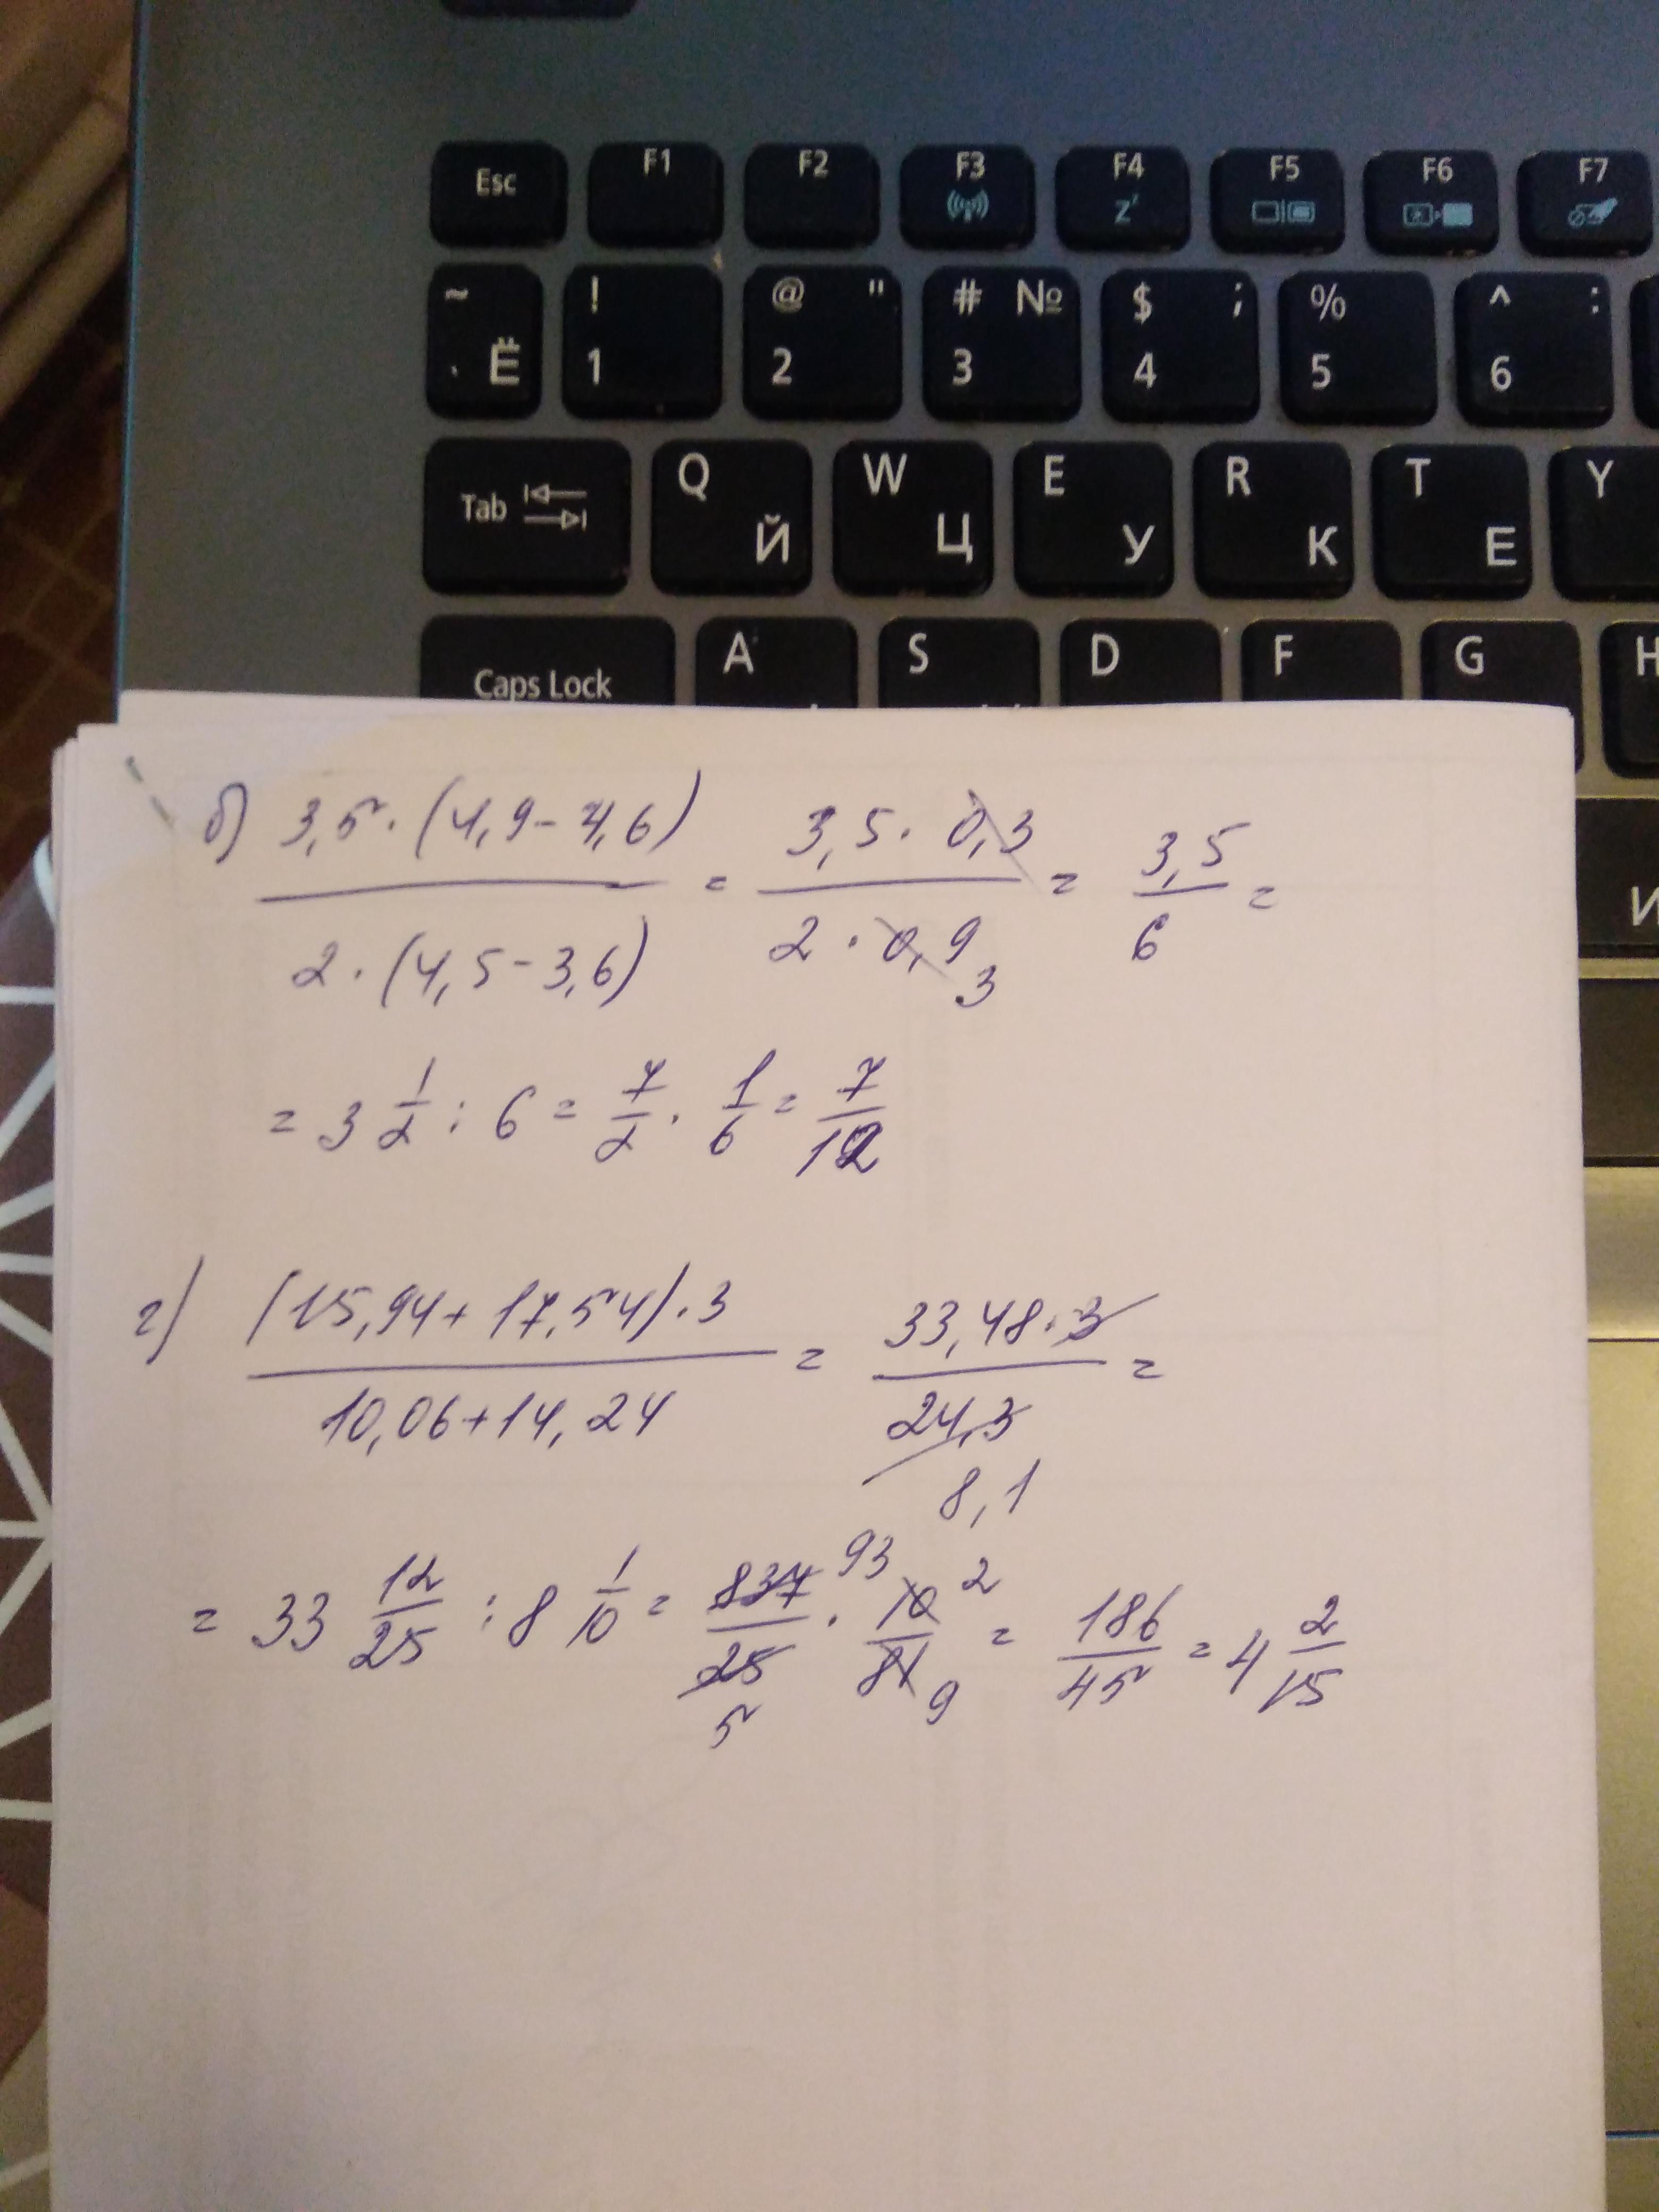 Esc F1 F2 F3 F4 Zz F5 F6 F7
~ ` Ё ! 1 @ " 2 # № 3 $ ; 4 % 5 ^ : 6
Tab Q Й W Ц E У R К T Е Y
Caps Lock A S D F G H
И
б) (3,5 · (4,9 - 4,6)) / (2 · (4,5 - 3,6)) = (3,5 · 0,3) / (2 · 0,9 3) = 3,5/6 =
= 3 1/2 : 6 = 7/2 · 1/6 = 7/12
г) ((15,94 + 17,54) · 3) / (10,06 + 14,24) = (33,48 · 3) / (24,3 8,1) =
= 33 12/25 : 8 1/10 = 837 93 / 25 5 · 10 2 / 81 9 = 186/45 = 4 2/15